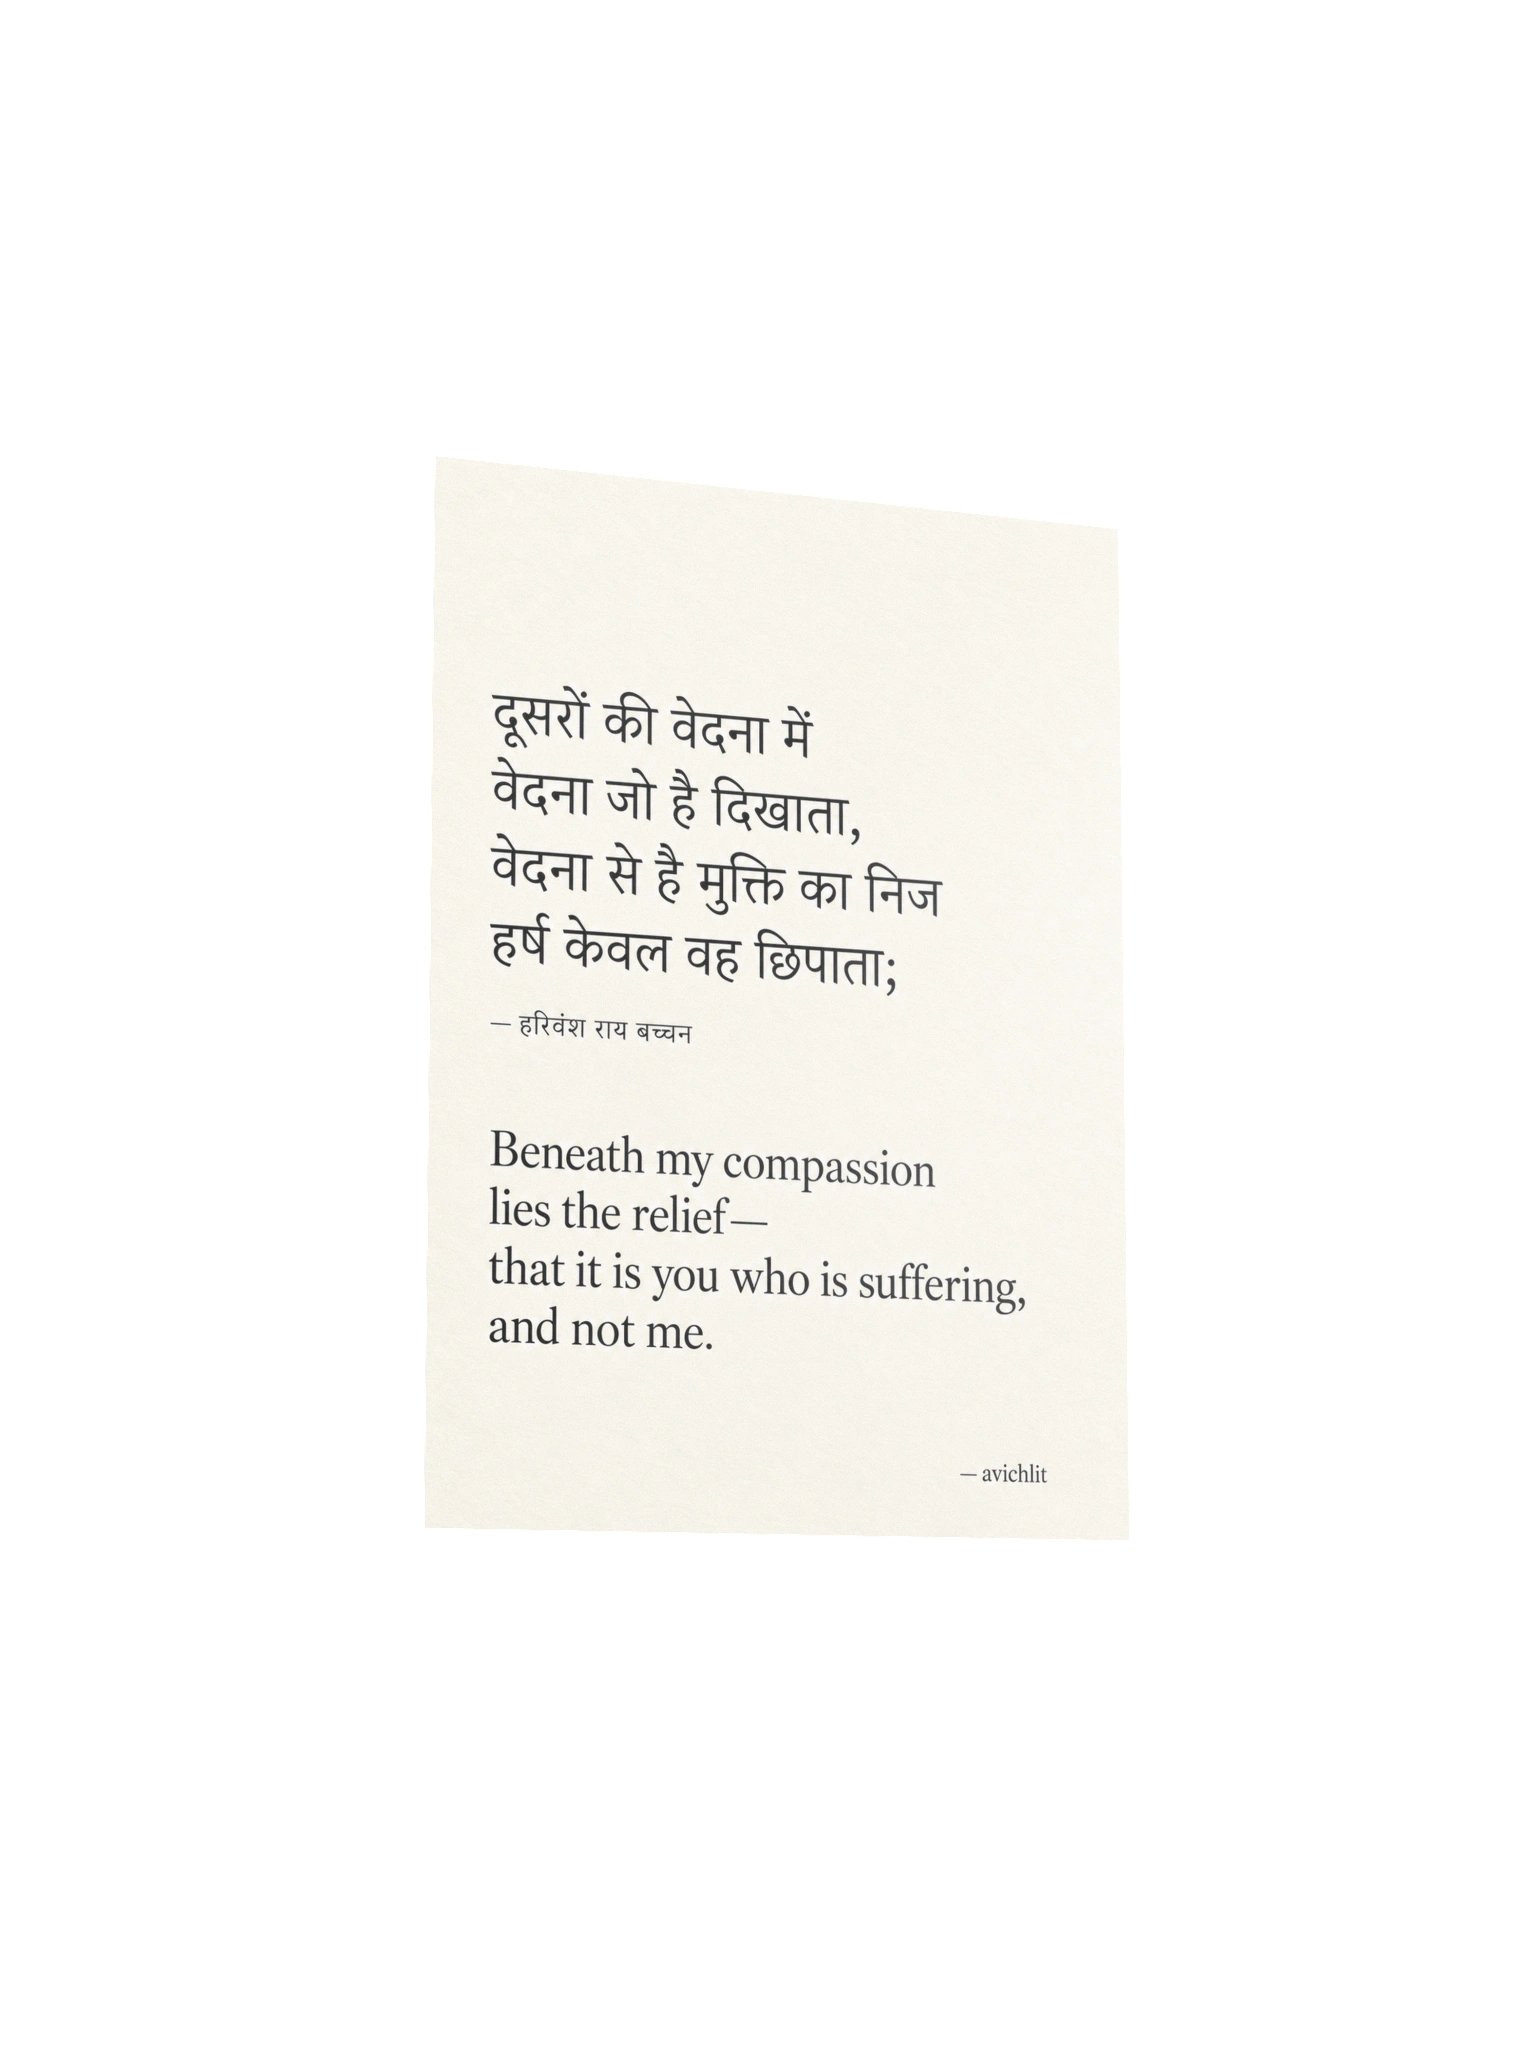 दूसरों की वेदना में
वेदना जो है दिखाता,
वेदना से है मुक्ति का निज
हर्ष केवल वह छिपाता;
— हरिवंश राय बच्चन
Beneath my compassion
lies the relief—
that it is you who is suffering,
and not me.
— avichlit